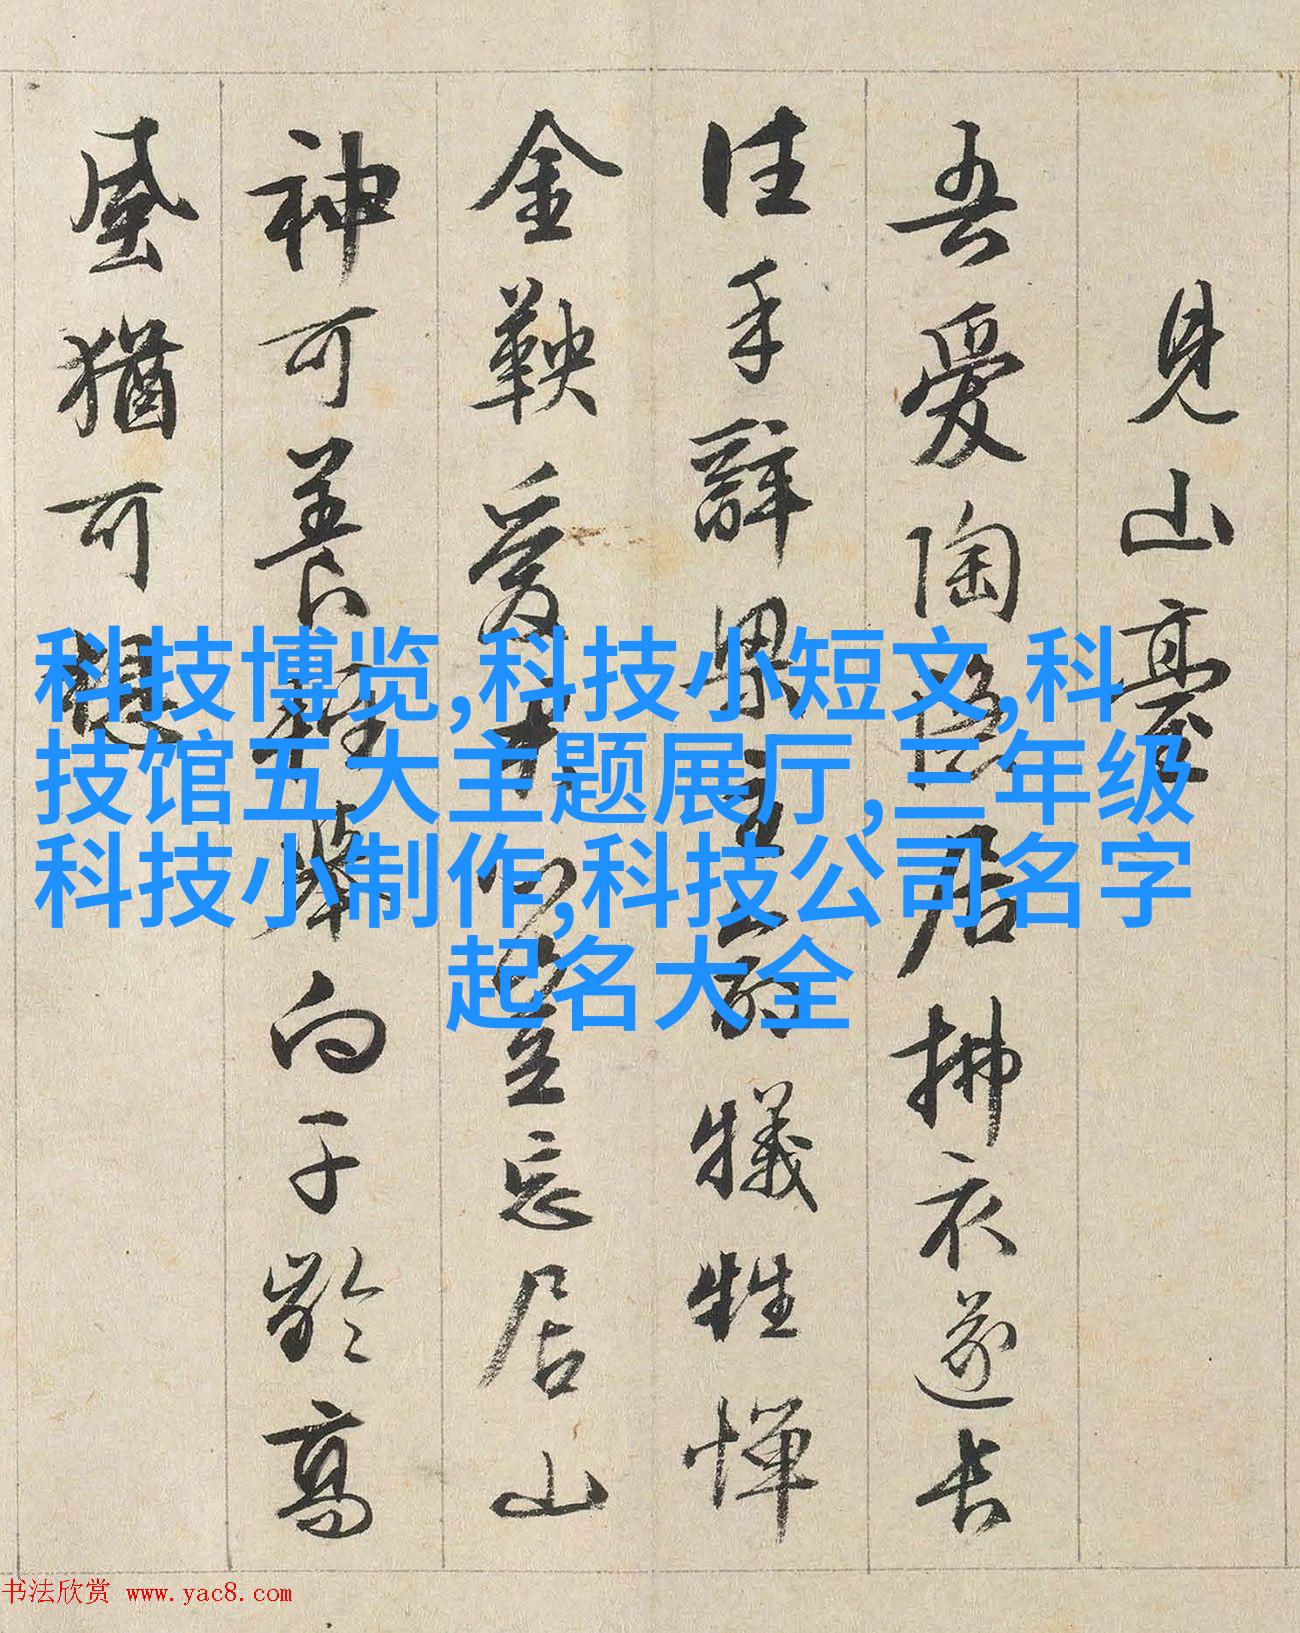 見山臺
吾愛陶隱居拂衣遂長
往手辭犧牲憚
金鞅豈忘居山
神可養白子齡高
風猶可想
科技博览,科技小短文,科
技馆五大主题展厅,三年级
科技小制作,科技公司名字
起名大全
书法欣赏 www.yac8.com